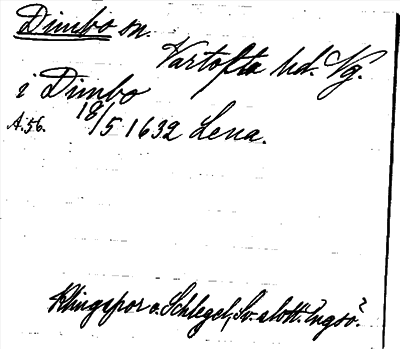 Dimbo sn.
Vartofta hd. Vg.
i Dimbo
A.56. 18/5 1632 Lena.
Klingspor o. Schlegel, Sv. slott. Engsö.